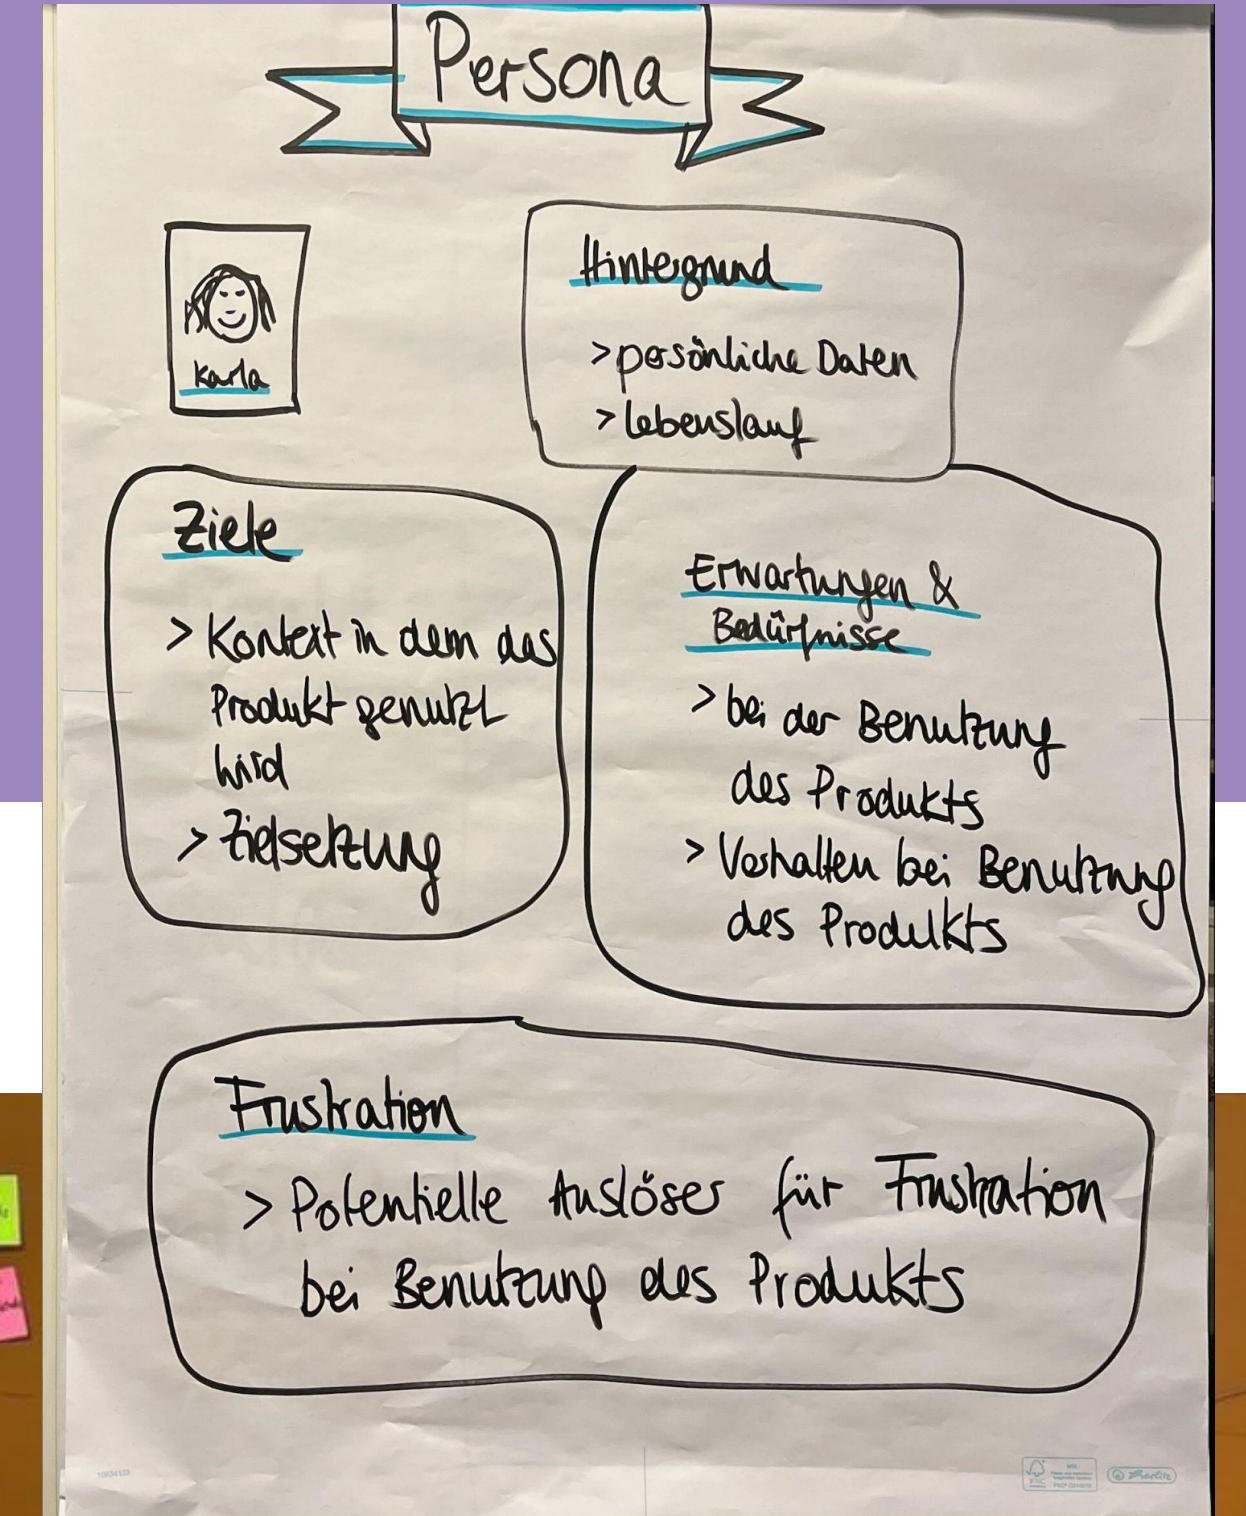 Persona
Karla
Hintergrund
> persönliche Daten
> Lebenslauf
Ziele
> Kontext in dem das
Produkt genutzt
wird
> Zielsetzung
Erwartungen &
Bedürfnisse
> bei der Benutzung
des Produkts
> Verhalten bei Benutzung
des Produkts
Frustration
> Potentielle Auslöser für Frustration
bei Benutzung des Produkts
FSC
MIX
Herlitz